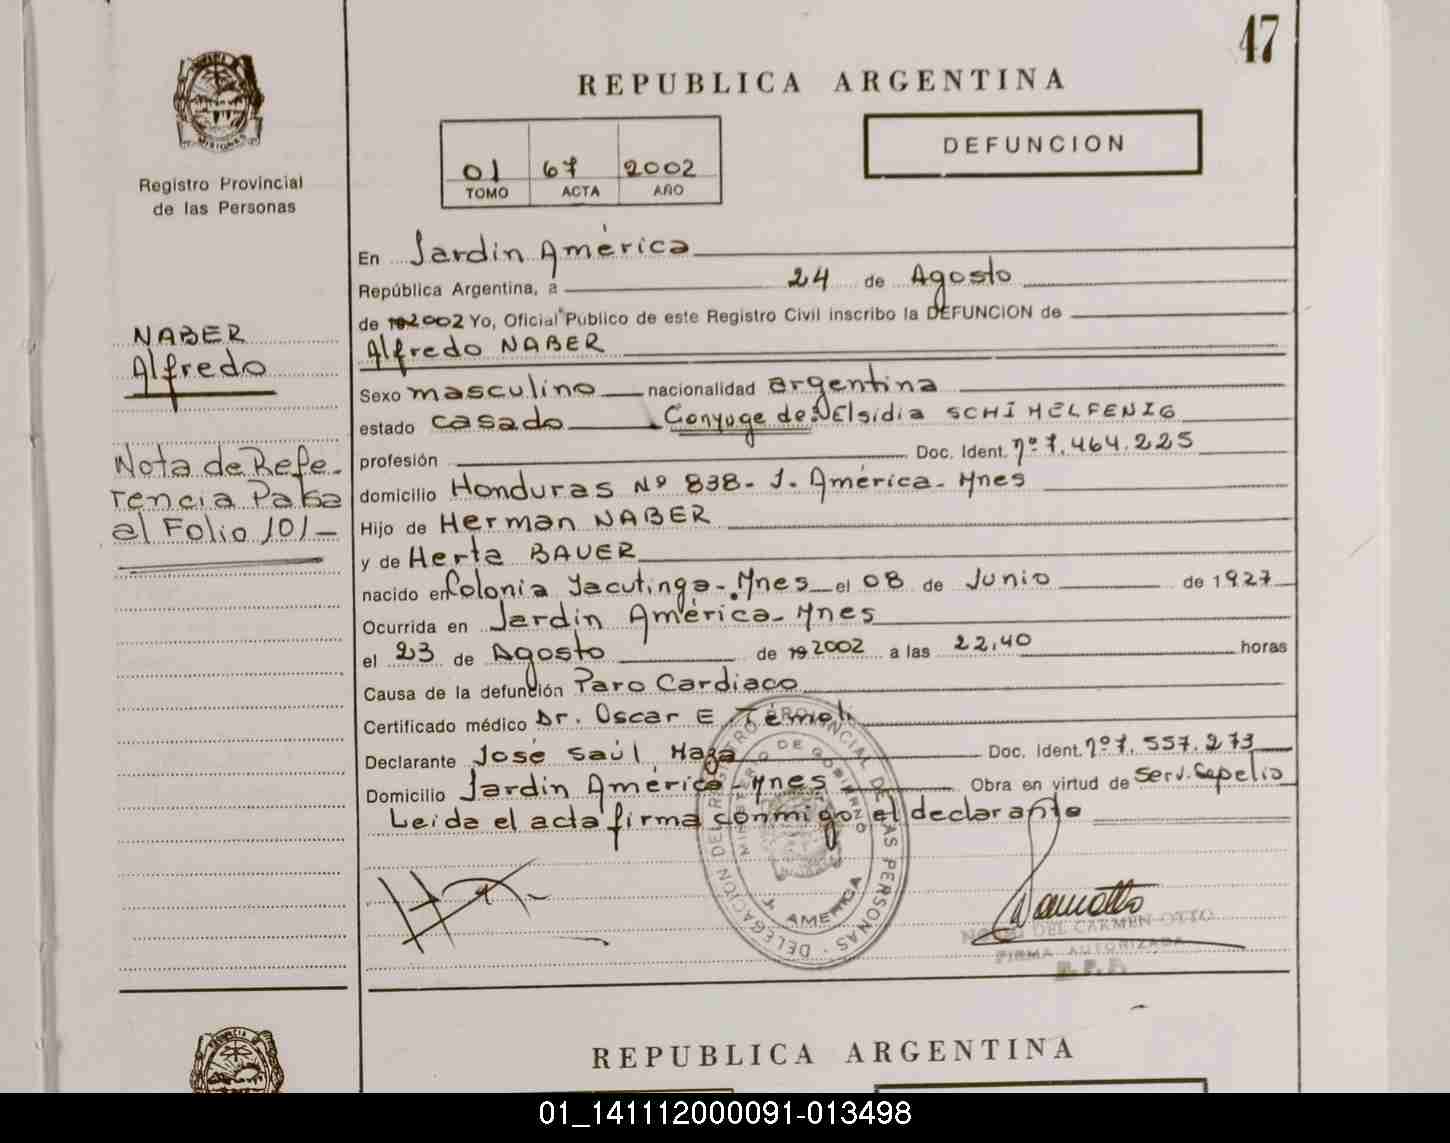 47
REPUBLICA ARGENTINA
DEFUNCION
01 67 2002
TOMO ACTA AÑO
MISIONES
Registro Provincial
de las Personas
NABER
Alfredo
Nota de Refe-
rencia Pasa
al Folio 101-
En Jardin América
República Argentina, a 24 de Agosto
de 192002 Yo, Oficial Público de este Registro Civil inscribo la DEFUNCION de
Alfredo NABER
Sexo masculino nacionalidad argentina
estado casado Conyuge de: Elsidia SCHIMELFENIG
profesión Doc. Ident. nº 7.464.225
domicilio Honduras Nº 838- J. América- Mnes
Hijo de Herman NABER
y de Herta BAUER
nacido en Colonia Yacutinga-Mnes el 08 de Junio de 1927
Ocurrida en Jardin América- Mnes
el 23 de Agosto de 192002 a las 22,40 horas
Causa de la defunción Paro Cardiaco
Certificado médico Dr. Oscar E
Declarante José Saúl Haza Doc. Ident. nº 7.557.273
Domicilio Jardin América-Mnes Obra en virtud de Serv. Sepelio
Leida el acta firma conmigo el declarante
DELEGACION DEL REGISTRO PROVINCIAL DE LAS PERSONAS
MINISTERIO DE GOBIERNO
J. AMERICA
DEL CARMEN OTTO
FIRMA AUTORIZADA
R.P.P.
REPUBLICA ARGENTINA
01_141112000091-013498